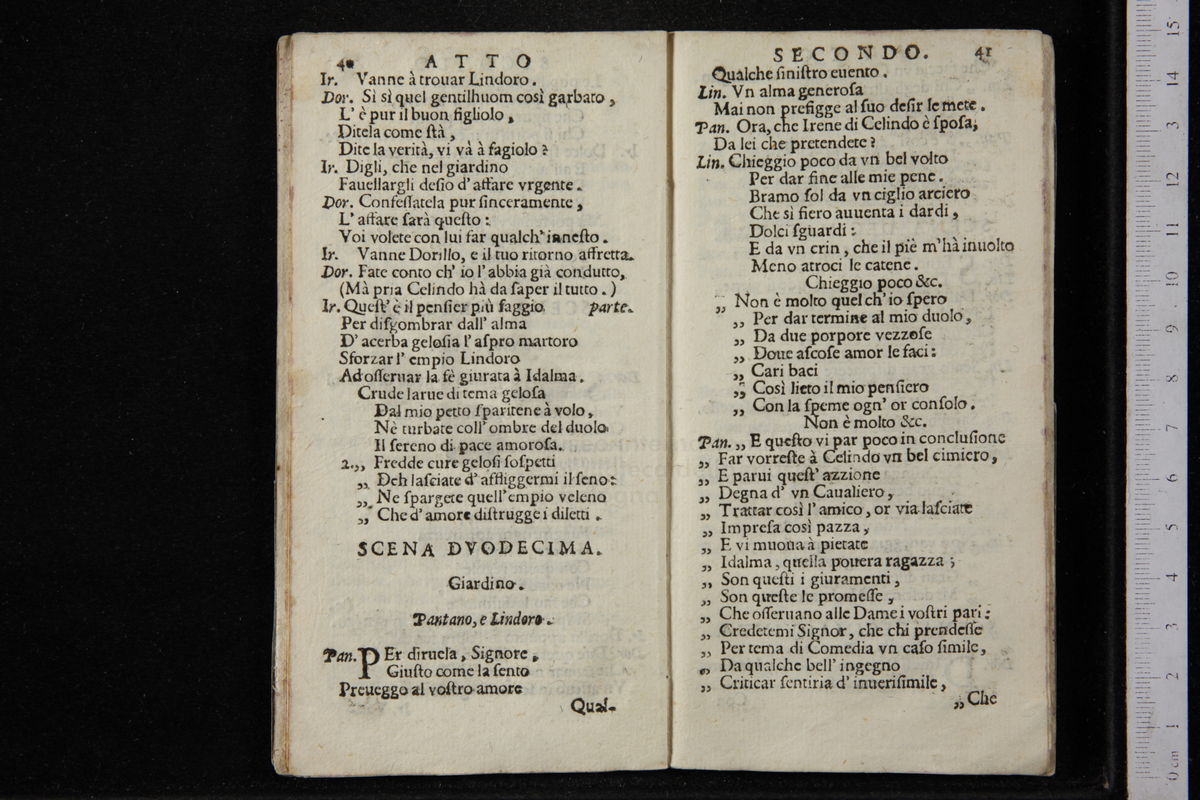 40 ATTO
Ir. Vanne à trouar Lindoro.
Dor. Sì sì quel gentilhuom così garbato,
L' è pur il buon figliolo,
Ditela come ſtà,
Dite la verità, vi và à fagiolo?
Ir. Digli, che nel giardino
Fauellargli deſio d' affare vrgente.
Dor. Confeſſatela pur ſinceramente,
L' affare ſarà queſto:
Voi volete con lui far qualch' inneſto.
Ir. Vanne Dorillo, e il tuo ritorno affretta.
Dor. Fate conto ch' io l' abbia già condutto,
(Mà pria Celindo hà da ſaper il tutto.)
Ir. Queſt' è il penſier più ſaggio parte.
Per diſgombrar dall' alma
D' acerba geloſia l' aſpro martoro
Sforzar l' empio Lindoro
Ad oſſeruar la fè giurata à Idalma.
Crude larue di tema geloſa
Dal mio petto ſparitene à volo,
Nè turbate coll' ombre del duolo
Il ſereno di pace amoroſa.
2.,, Fredde cure geloſi ſoſpetti
,, Deh laſciate d' affliggermi il ſeno:
,, Ne ſpargete quell' empio veleno
,, Che d' amore diſtrugge i diletti.
SCENA DVODECIMA.
Giardino.
Pantano, e Lindoro.
Pan. PEr diruela, Signore,
Giuſto come la ſento
Preueggo al voſtro amore
Qual-
SECONDO. 41
Qualche ſiniſtro euento.
Lin. Vn alma generoſa
Mai non prefigge al ſuo deſir le mete.
Pan. Ora, che Irene di Celindo è ſpoſa,
Da lei che pretendete?
Lin. Chieggio poco da vn bel volto
Per dar fine alle mie pene.
Bramo ſol da vn ciglio arciero
Che sì fiero auuenta i dardi,
Dolci ſguardi:
E da vn crin, che il piè m'hà inuolto
Meno atroci le catene.
Chieggio poco &c.
,, Non è molto quel ch' io ſpero
,, Per dar termine al mio duolo,
,, Da due porpore vezzoſe
,, Doue aſcoſe amor le faci:
,, Cari baci
,, Così lieto il mio penſiero
,, Con la ſpeme ogn' or conſolo.
Non è molto &c.
Pan. ,, E queſto vi par poco in concluſione
,, Far vorreſte à Celindo vn bel cimiero,
,, E parui queſt' azzione
,, Degna d' vn Caualiero,
,, Trattar così l' amico, or via laſciate
,, Impreſa così pazza,
,, E vi muoua à pietate
,, Idalma, quella pouera ragazza;
,, Son queſti i giuramenti,
,, Son queſte le promeſſe,
,, Che oſſeruano alle Dame i voſtri pari:
,, Credetemi Signor, che chi prendeſſe
,, Per tema di Comedia vn caſo ſimile,
,, Da qualche bell' ingegno
,, Criticar ſentiria d' inueriſimile,
,, Che